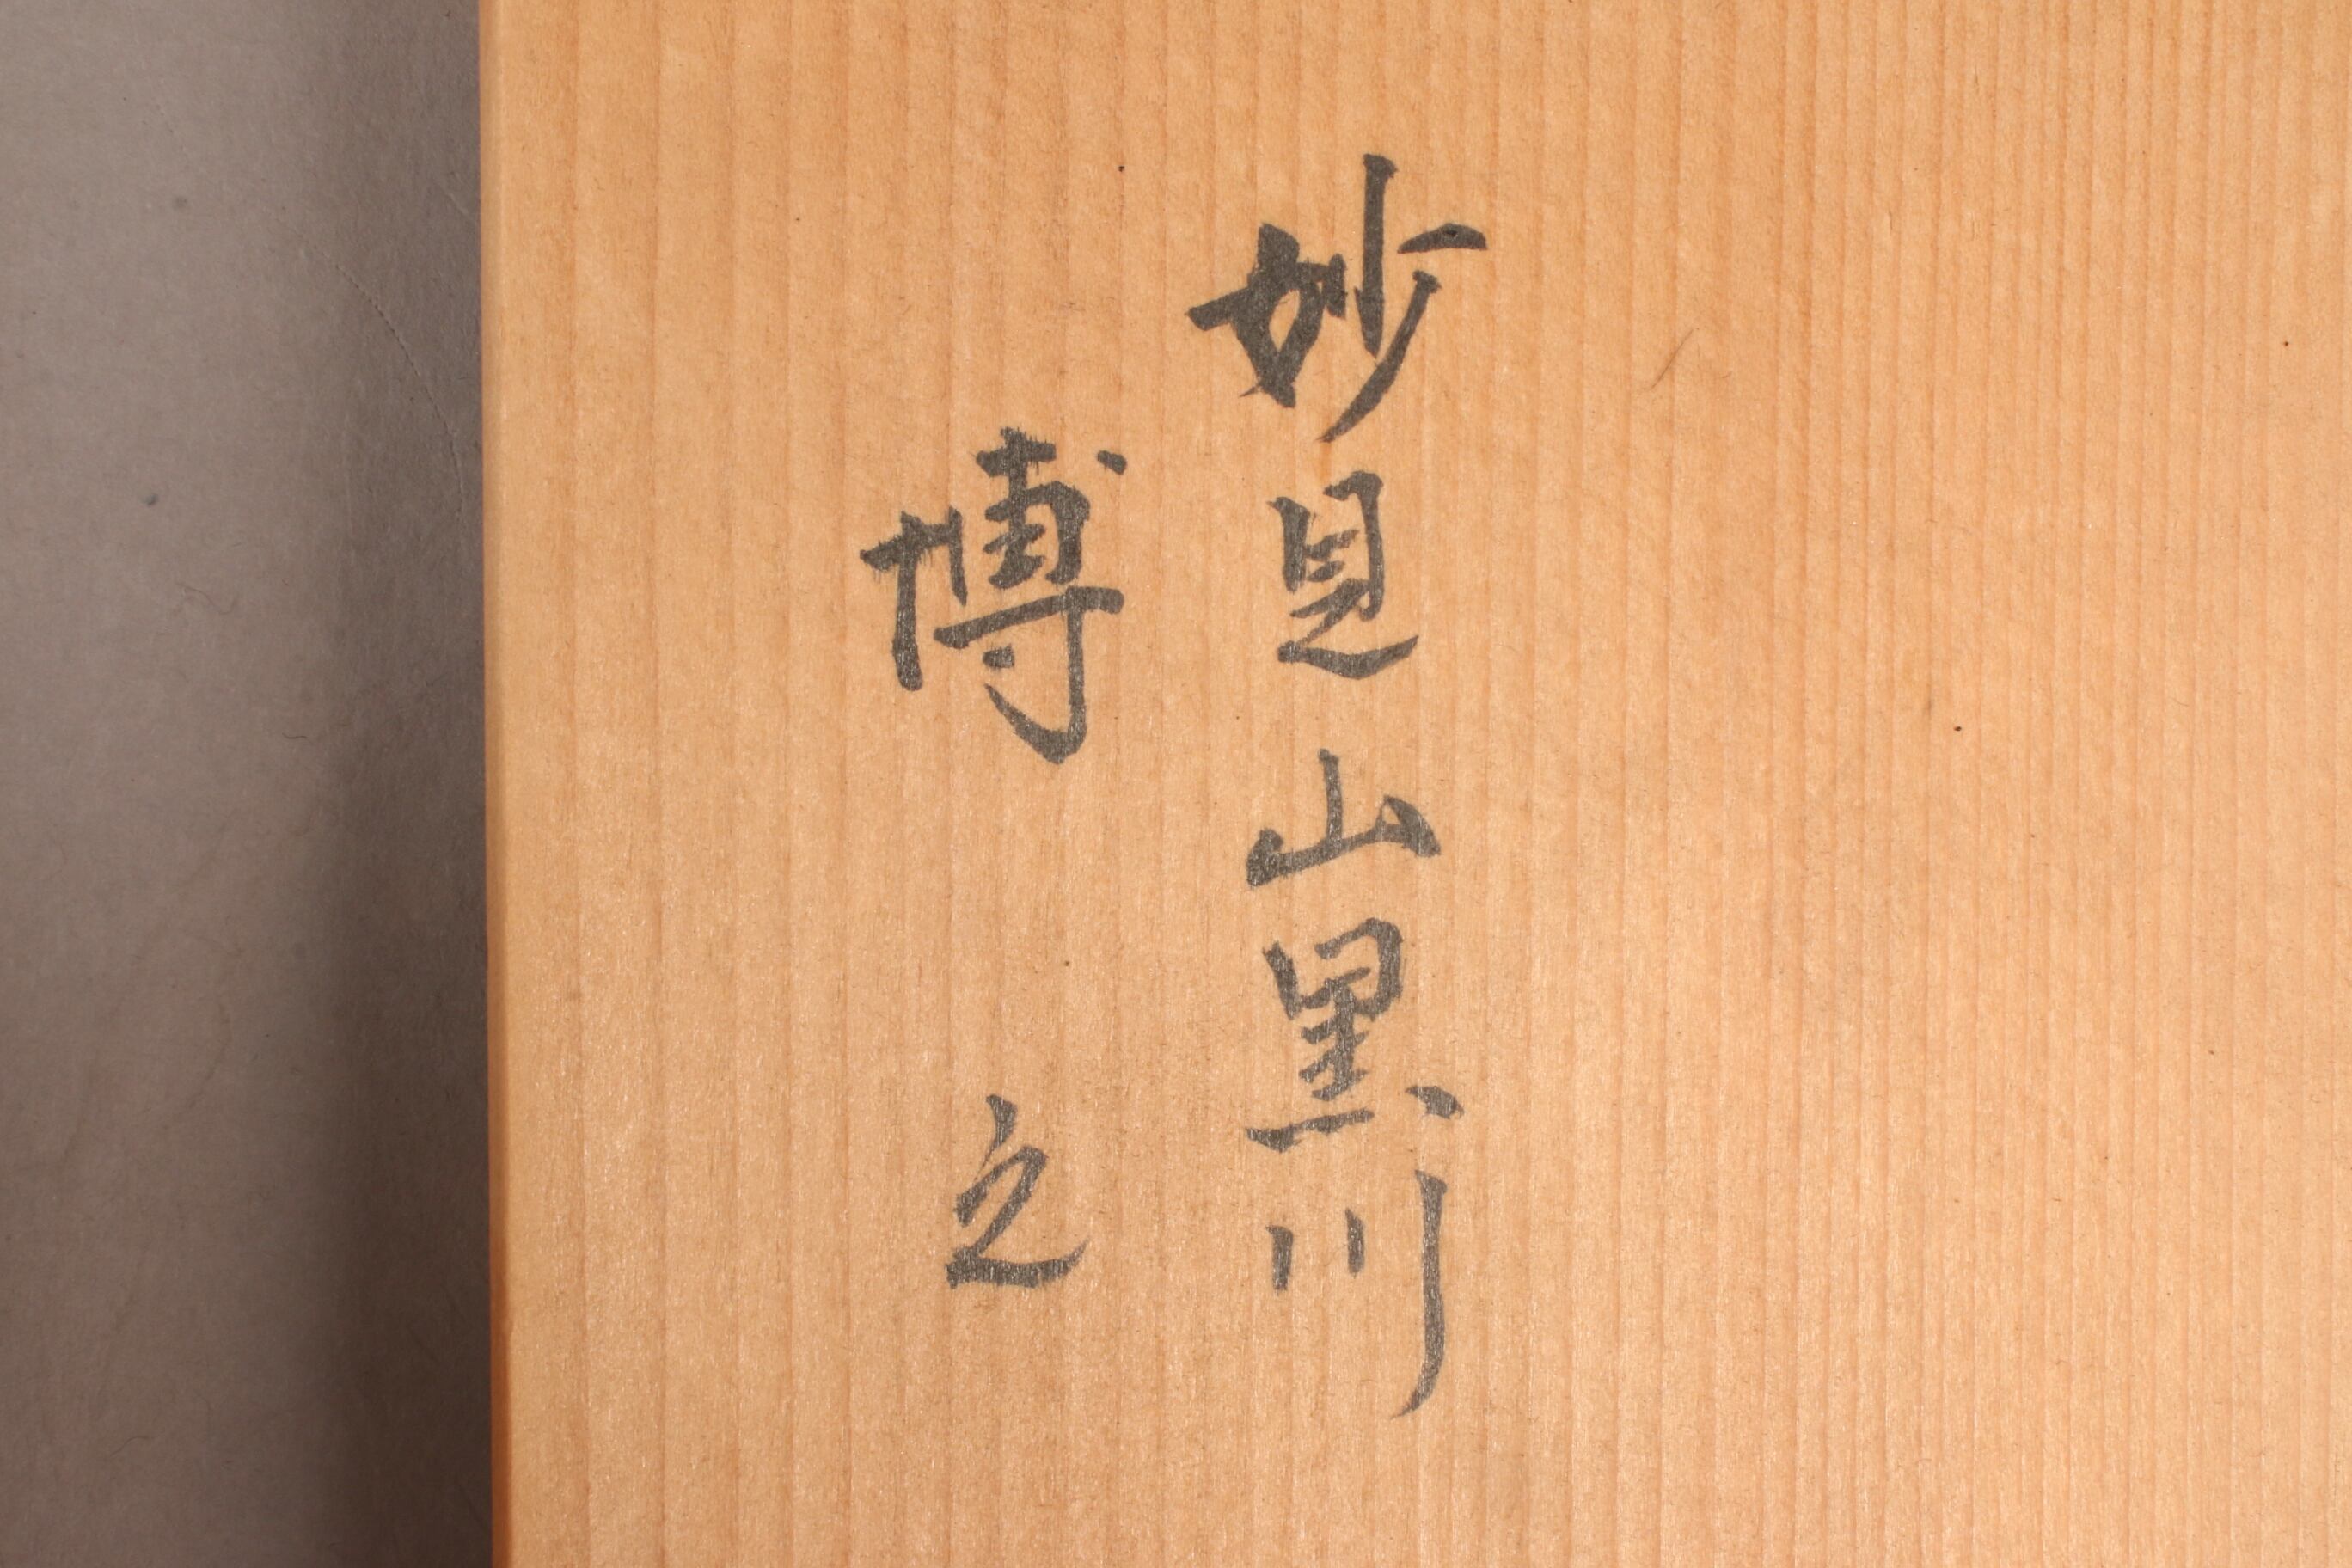 妙見山黒川
博之